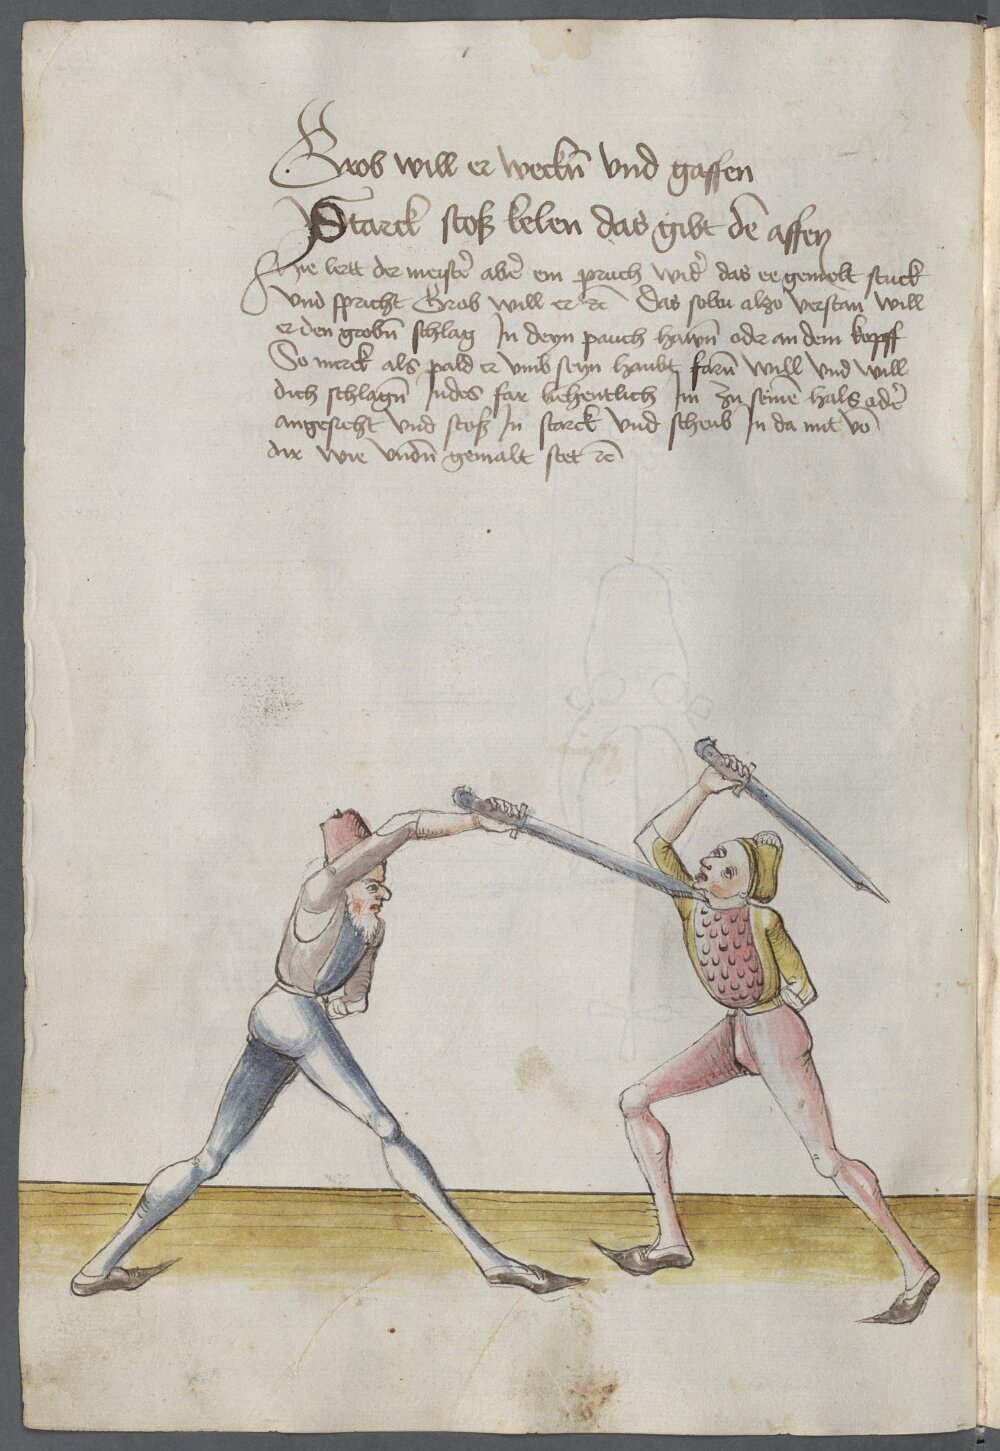 Grob will er weckn̄ vnd gaffen
Starck stoß kelen das gibt dē affen
Hie lertt der meistē abē ein pruch widē das ee gemelt stuck
vnd spricht Grob will er ⁊c̄ Das soltu also verstan will
er den grobn̄ schlag In deyn pauch hawn̄ odr an dem kopff
So merck als pald er vmb seyn haubt farn̄ will vnd will
dich schlagn̄ Indes far behentlich Im zu seinē hals odē
angesicht vnd stoß In starck vnd scheib In da mit vō
dir wie vndn̄ gemalt stet ⁊c̄